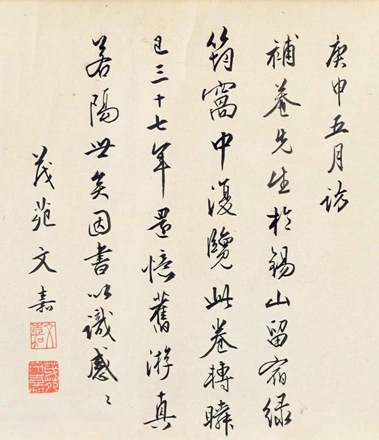 庚申五月訪
補菴先生於錫山留宿綠
筠窩中復覽此卷轉瞬
已三十七年還憶舊游真
若隔世矣因書以識感〻
茂苑文嘉